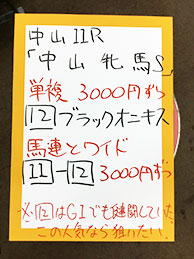 中山11R
「中山牝馬S」
単複 3000円ずつ
12 ブラックオニキス
馬連とワイド
11-12 3000円ずつ
※12はGIでも健闘していた。
この人気なら狙いたい!